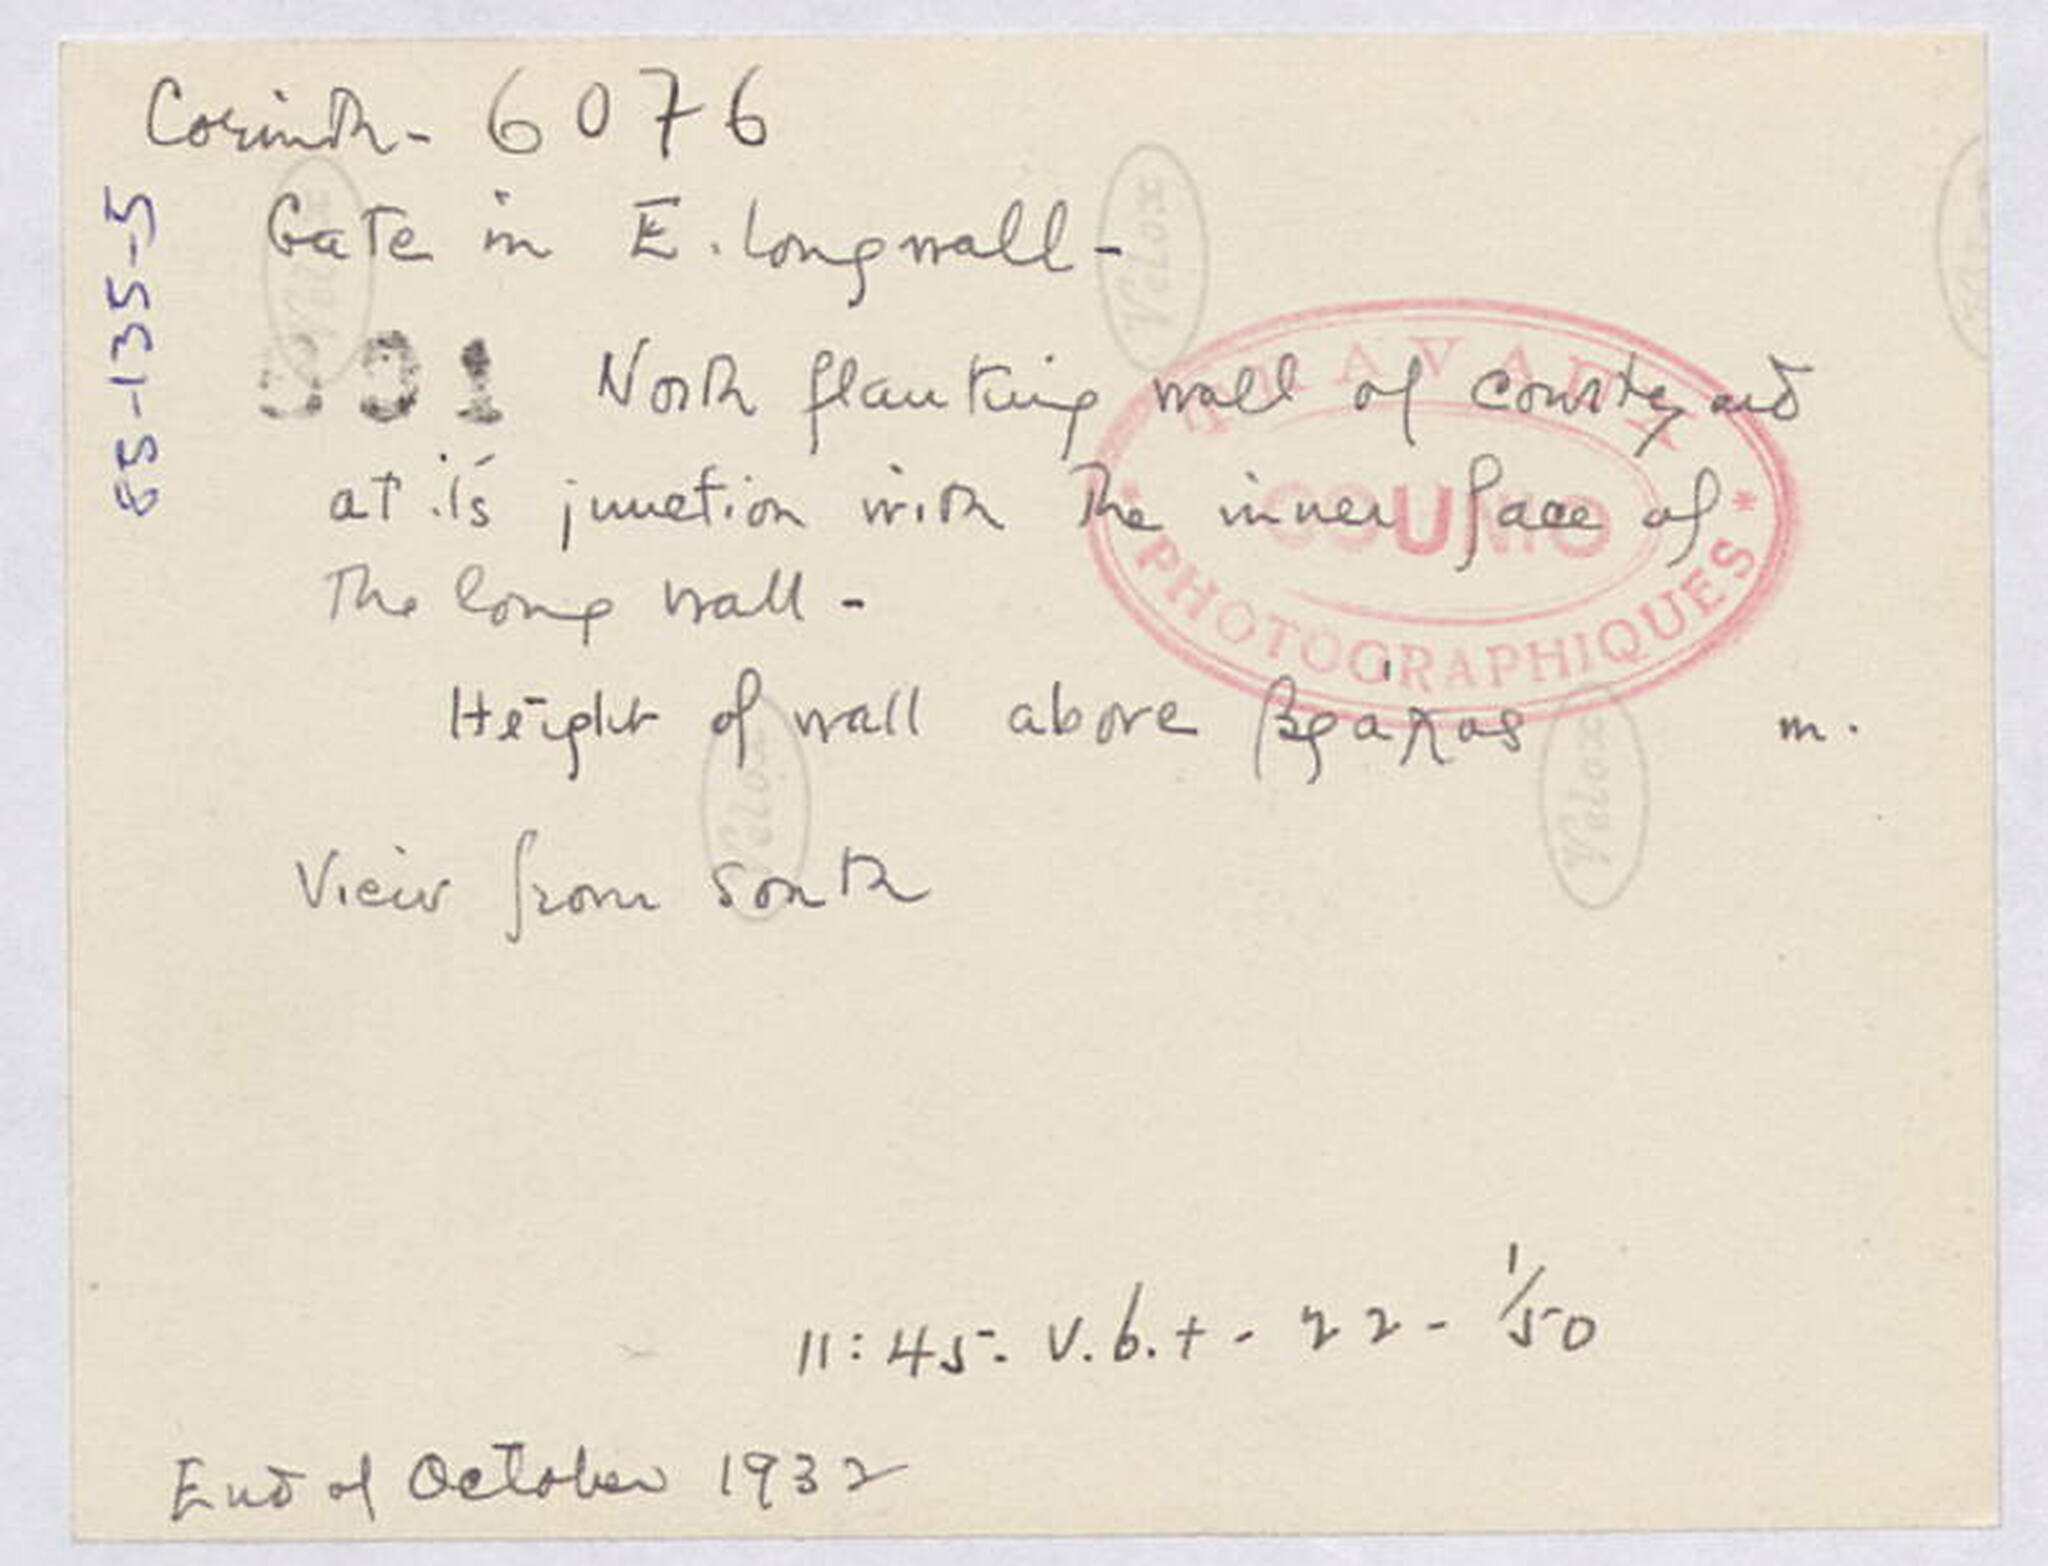 Corinth - 6076
85-135-5
Gate in E. Long wall -
001
North flanking wall of courtyard
at its junction with the inner face of
the long wall -
Height of wall above βράχος m.
View from south
11:45 - v.b.+ - 22 - 1/50
End of October 1932
TRAVAUX
PHOTOGRAPHIQUES
Velox
Velox
Velox
Velox
Velox